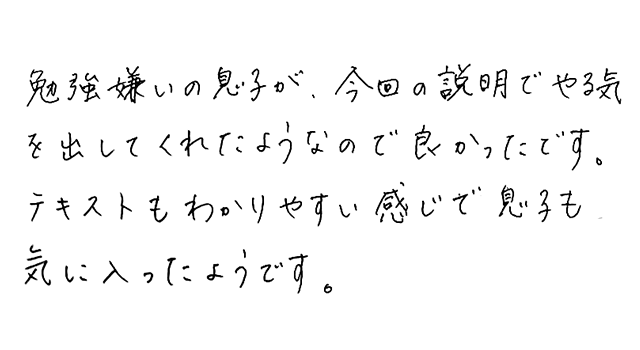 勉強嫌いの息子が、今回の説明でやる気
を出してくれたようなので良かったです。
テキストもわかりやすい感じで息子も
気に入ったようです。